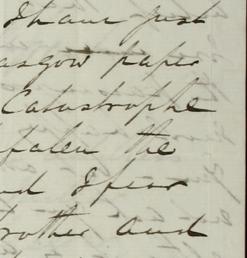 I have just
asgow paper
Catastrophe
fallen the
nd I fear
rother and